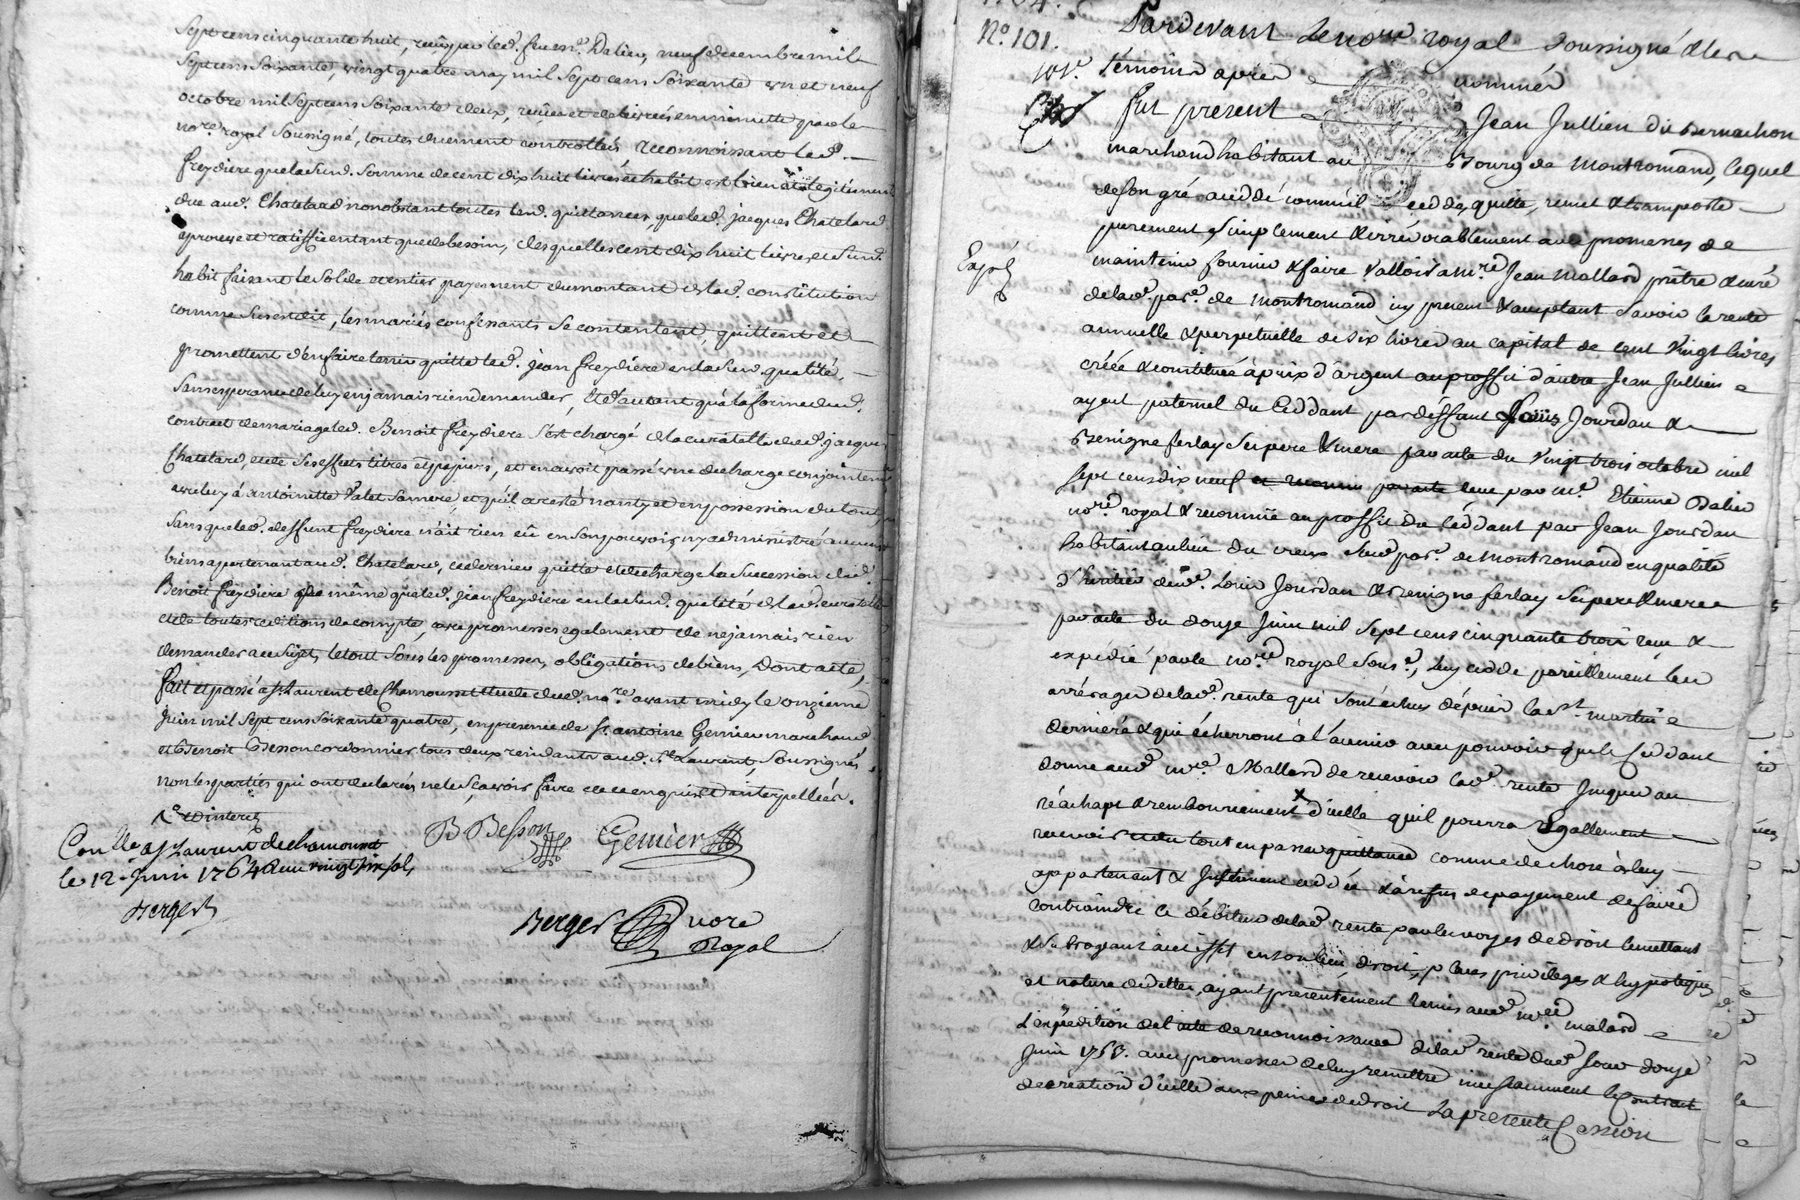 Sept cens cinquante huit, reçu par led. feu me. Dalier, neuf decembre mil
Sept cens Soixante, vingt quatre may mil Sept cens Soixante un et neuf
octobre mil Sept cens Soixante deux, reçues et delivrées en minutte par le
nore. royal Soussigné, toutes duement controllées reconnoissant led.
freydiere que lad. Somme de cent dix huit livres et habit est bien et legitimement
due aud. Chatelard nonobstant toutes lesd. quittances, que led. jacques Chatelard
aprouve et ratiffie entant que de besoin, desquelles cent dix huit livres et Susd.
habit faisant le Solde et entier payement du montant de lad. constitution
comme Sus est dit, les mariés confessants Se contentent, quittent et
promettent d'en faire tenir quitte led. jean freydiere en lad. qualité,
Sans esperance de luy en jamais rien demander, et d'autant qu'a la forme dud.
contract de mariage led. Benoit freydiere S'est chargé de la curatelle dud. jacques
Chatelard, et de Ses effets titres et papiers, et en avoit passé une decharge conjointemt
avec luy à antoinette Valet Sa mere, et qu'il a resté nanty et en possession du tout,
Sans que led. deffunt freydiere n'ait rien eû en Son pouvoir, ny administré aucuns
biens apartenant aud. Chatelard, ce dernier quitte et decharge la Succession dud.
Benoit freydiere de même que led. jean freydiere en lad. qualité de lad. curatelle
et de toutes redditions de compte, avec promesses egalement de ne jamais rien
demander a ce Sujet, le tout Sous les promesses, obligations de biens, Dont acte,
fait et passé a St. Laurent de Chamousset etude dud. nore. avant midy le onzieme
juin mil Sept cens Soixante quatre, en presence de Sr. antoine Genier marchand
et Benoit Besson cordonnier, tous deux residants aud. St. Laurent, Soussignés
non les parties qui ont declarées ne le Sçavoir faire de ce enquis et interpellées.
B Besson Genier
Conlle a St Laurent de chamousset
le 12 Juin 1764 Reçu vingt six sols
Berger
Berger nore
Royal
No. 101.
Pardevant Le nore royal Soussigné & les
témoins aprés nommés
fut present Jean Jullien dit Bernachon
marchand habitant au Bourg de Montromand, lequel
de son gré a céddé comme il cedde, quitte, remet & transporte
purement, Simplement & irrévocablement avec promesses de
Expé
maintenir fournir & faire valloir a mre. Jean Mallard prêtre & curé
de lad. parr. de Montromand icy present & acceptant Savoir la rente
annuelle & perpétuelle de six livres au capital de cent vingt livres
créée & constituée à prix d'argent au proffit d'autre Jean Jullien
ayeul paternel du Ceddant par deffunt Louis Jourdan &
Benigne ferlay Ses pere & mere par acte du vingt trois octobre mil
sept cens dix neuf reçu par me. Etienne Dalier
nore royal & reconnüe au proffit du Céddant par Jean Jourdan
habitant au lieu du creux Susd. par. de Montromand en qualité
d'heritier desd. Louis Jourdan & Benigne ferlay Ses pere & mere
par acte du douze Juin mil sept cens cinquante trois reçu &
expédié par le nore royal Sousé., luy cedde pareillement les
arrérages de lad. rente qui sont échus dépuis la st. martin
derniere & qui écherront à l'avenir avec pouvoir que le Ceddant
donne aud. mre. Mallard de recevoir lad. rente Jusques au
réachapt & remboursement d'icelle qu'il pourra Egallement
recevoir en tout en passer quittance comme de chose à luy
appartenant & Justement ceddée & à refus de payement de faire
contraindre le débiteur de lad. rente par les voyes de droit le mettant
& Subrogeant à cet effet en son lieu, droit, places privilèges & hypoteques
et nature d'icelles, ayant presentement remis aud. mre. malard
L'expédition de l'acte de reconnoissance de lad. rente dud. jour douze
Juin 1753. avec promesses de luy remettre incessamment le Contract
de création d'icelle aux peines de droit La presente Cession